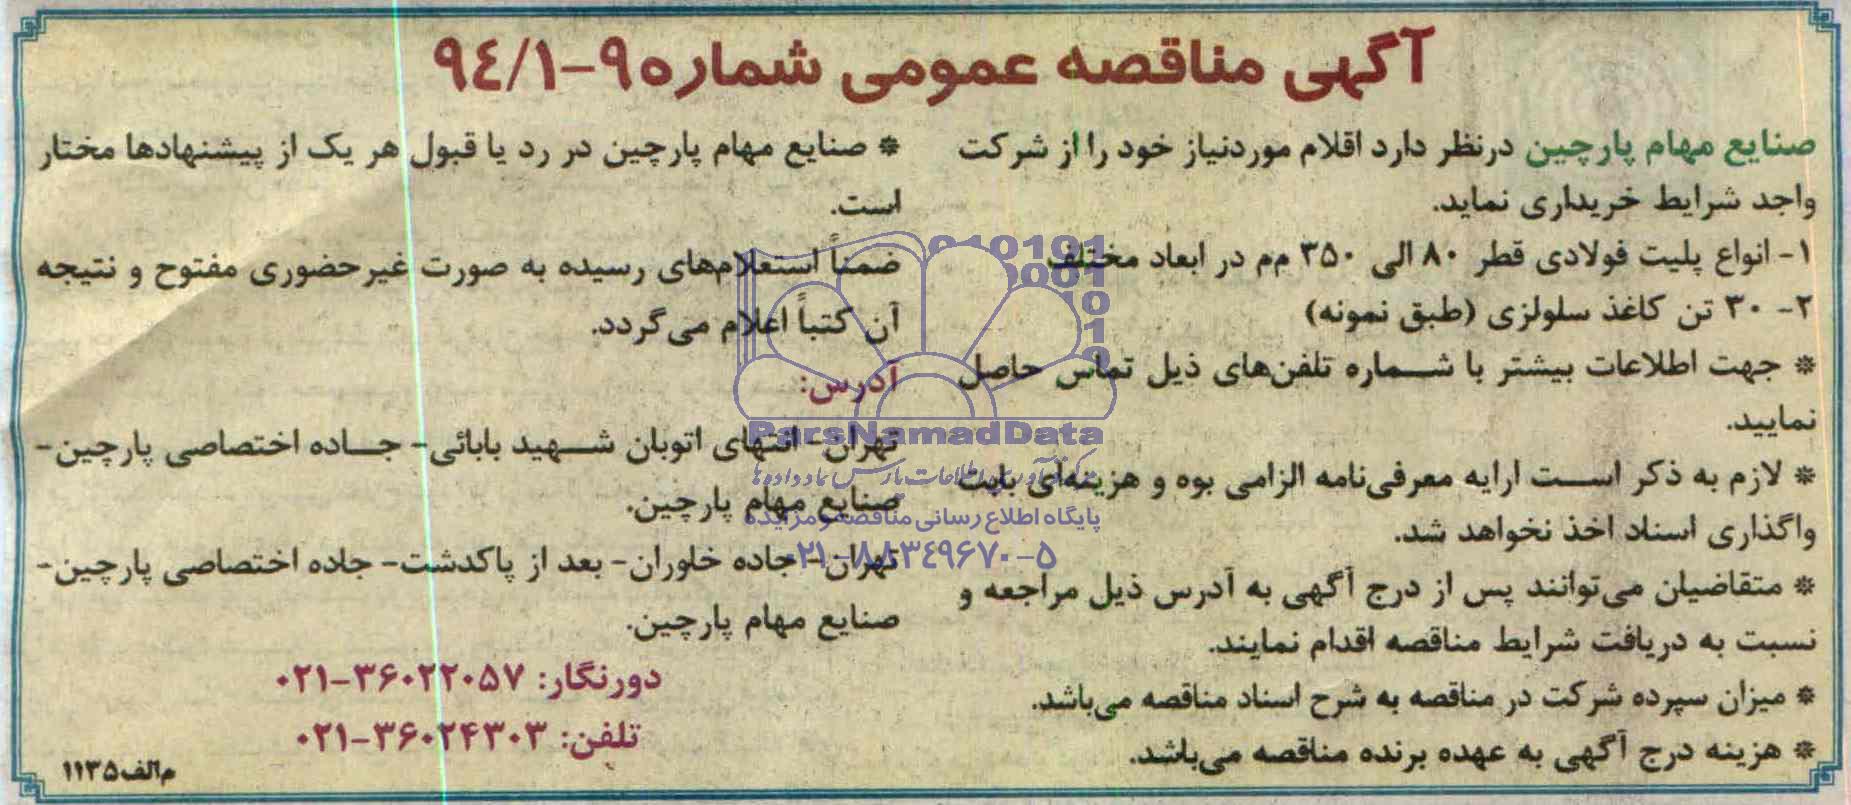 آگهی مناقصه عمومی شماره ۹-۹۴/۱
صنایع مهام پارچین درنظر دارد اقلام موردنیاز خود را از شرکت
واجد شرایط خریداری نماید.
۱- انواع پلیت فولادی قطر ۸۰ الی ۳۵۰ م‌م در ابعاد مختلف
۲- ۳۰ تن کاغذ سلولزی (طبق نمونه)
* جهت اطلاعات بیشتر با شماره تلفن‌های ذیل تماس حاصل
نمایید.
* لازم به ذکر است ارایه معرفی‌نامه الزامی بوه و هزینه‌ای بابت
واگذاری اسناد اخذ نخواهد شد.
* متقاضیان می‌توانند پس از درج آگهی به آدرس ذیل مراجعه و
نسبت به دریافت شرایط مناقصه اقدام نمایند.
* میزان سپرده شرکت در مناقصه به شرح اسناد مناقصه می‌باشد.
* هزینه درج آگهی به عهده برنده مناقصه می‌باشد.
* صنایع مهام پارچین در رد یا قبول هر یک از پیشنهادها مختار
است.
ضمناً استعلام‌های رسیده به صورت غیرحضوری مفتوح و نتیجه
آن کتباً اعلام می‌گردد.
آدرس:
تهران- انتهای اتوبان شهید بابائی- جاده اختصاصی پارچین-
صنایع مهام پارچین.
تهران- جاده خاوران- بعد از پاکدشت- جاده اختصاصی پارچین-
صنایع مهام پارچین.
دورنگار: ۳۶۰۲۲۰۵۷-۰۲۱
تلفن: ۳۶۰۲۴۳۰۳-۰۲۱
م‌الف۱۱۳۵
ParsNamadData
پایگاه اطلاع رسانی مناقصه و مزایده
۰۲۱-۸۸۳۴۹۶۷۰-۵